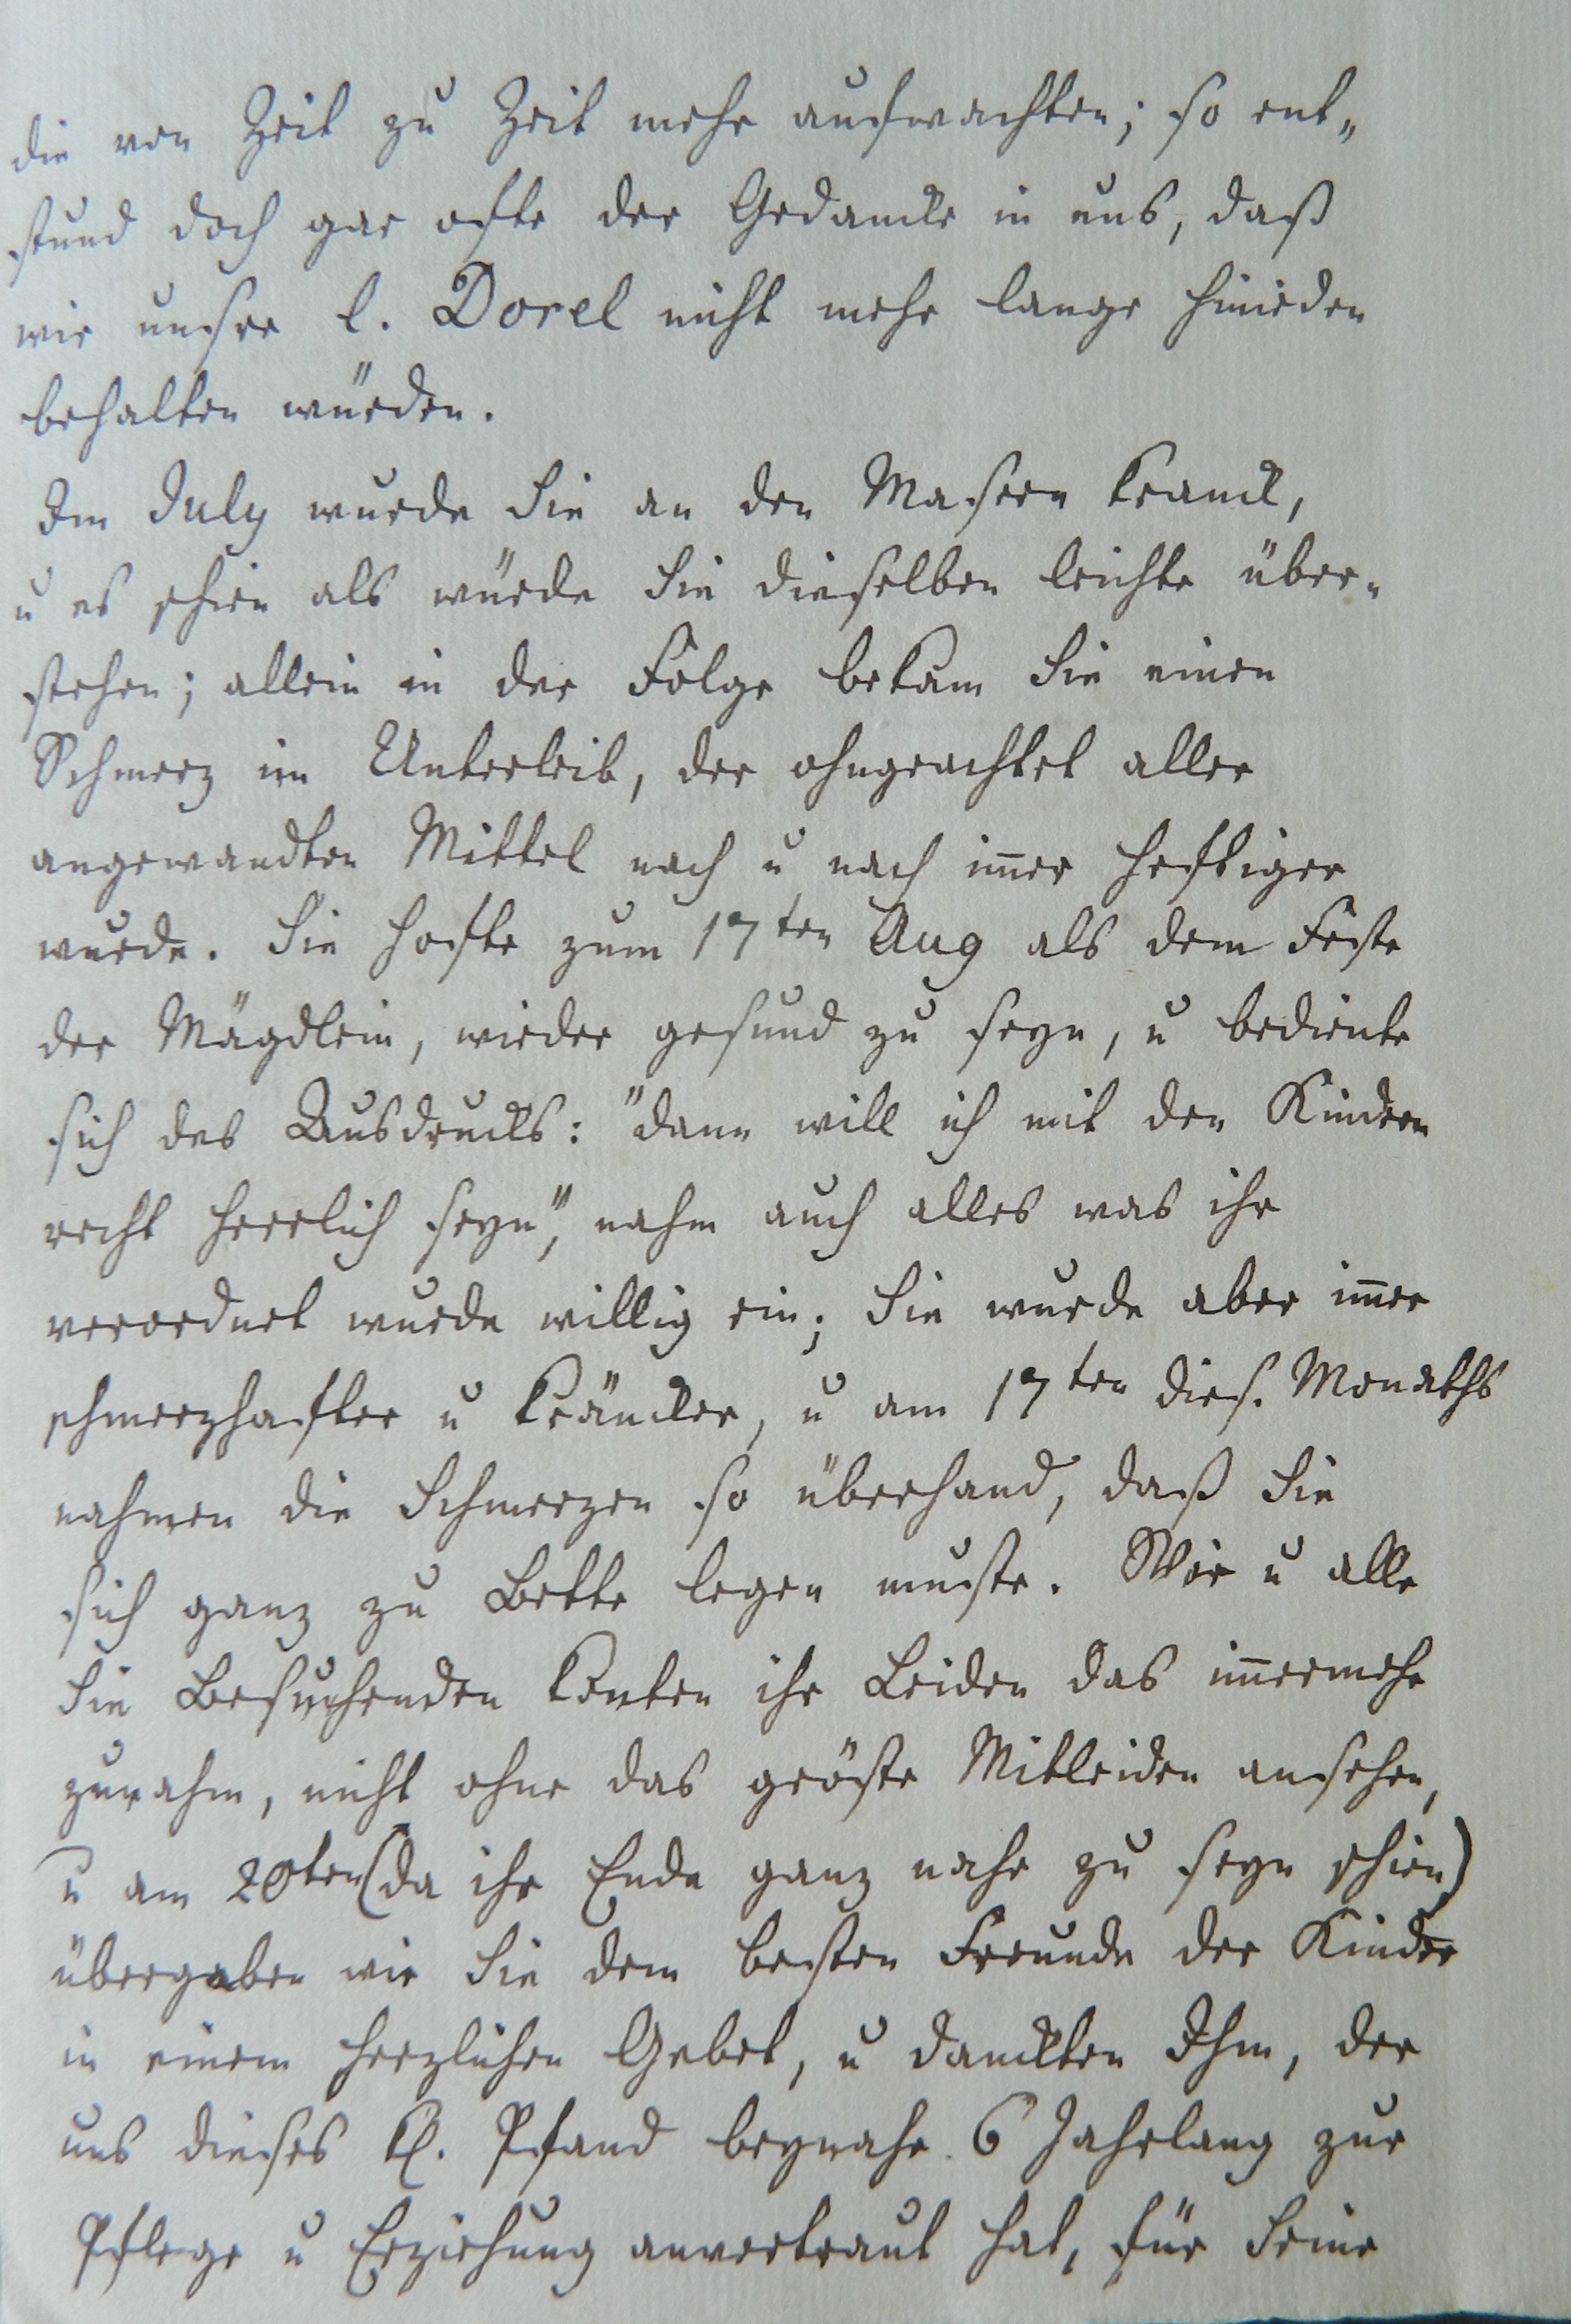 die von Zeit zu Zeit mehr aufwachten; so ent„
stund doch gar ofte der Gedancke in uns, daß
wir unsre l. Dorel nicht mehr lange hinieden
behalten würden.
Im July wurde Sie an den Masern kranck,
u es schien als würde Sie dieselben leichte über„
stehen; allein in der Folge bekam Sie einen
Schmerz im Unterleib, der ohngeachtet aller
angewandten Mittel nach u nach im̄er heftiger
wurde. Sie hofte zum 17ten Aug als dem Feste
der Mägdlein, wieder gesund zu seyn, u bediente
sich des Ausdrucks: "dann will ich mit den Kindern
recht herrlich seyn", nahm auch alles was ihr
verordnet wurde willig ein; Sie wurde aber im̄er
schmerzhafter u kräncker, u am 17ten dies. Monaths
nahmen die Schmerzen so überhand, daß Sie
sich ganz zu Bette legen muste. Wir u alle
Sie Besuchenden konten ihr Leiden das im̄ermehr
zunahm, nicht ohne das gröste Mitleiden ansehen,
u am 20ten (da ihr Ende ganz nahe zu seyn schien)
übergaben wir Sie dem besten Freunde der Kinder
in einem herzlichen Gebet, u danckten Ihm, der
uns dieses kl. Pfand beynahe 6 Jahrlang zur
Pflege u Erziehung anvertraut hat, für Seine